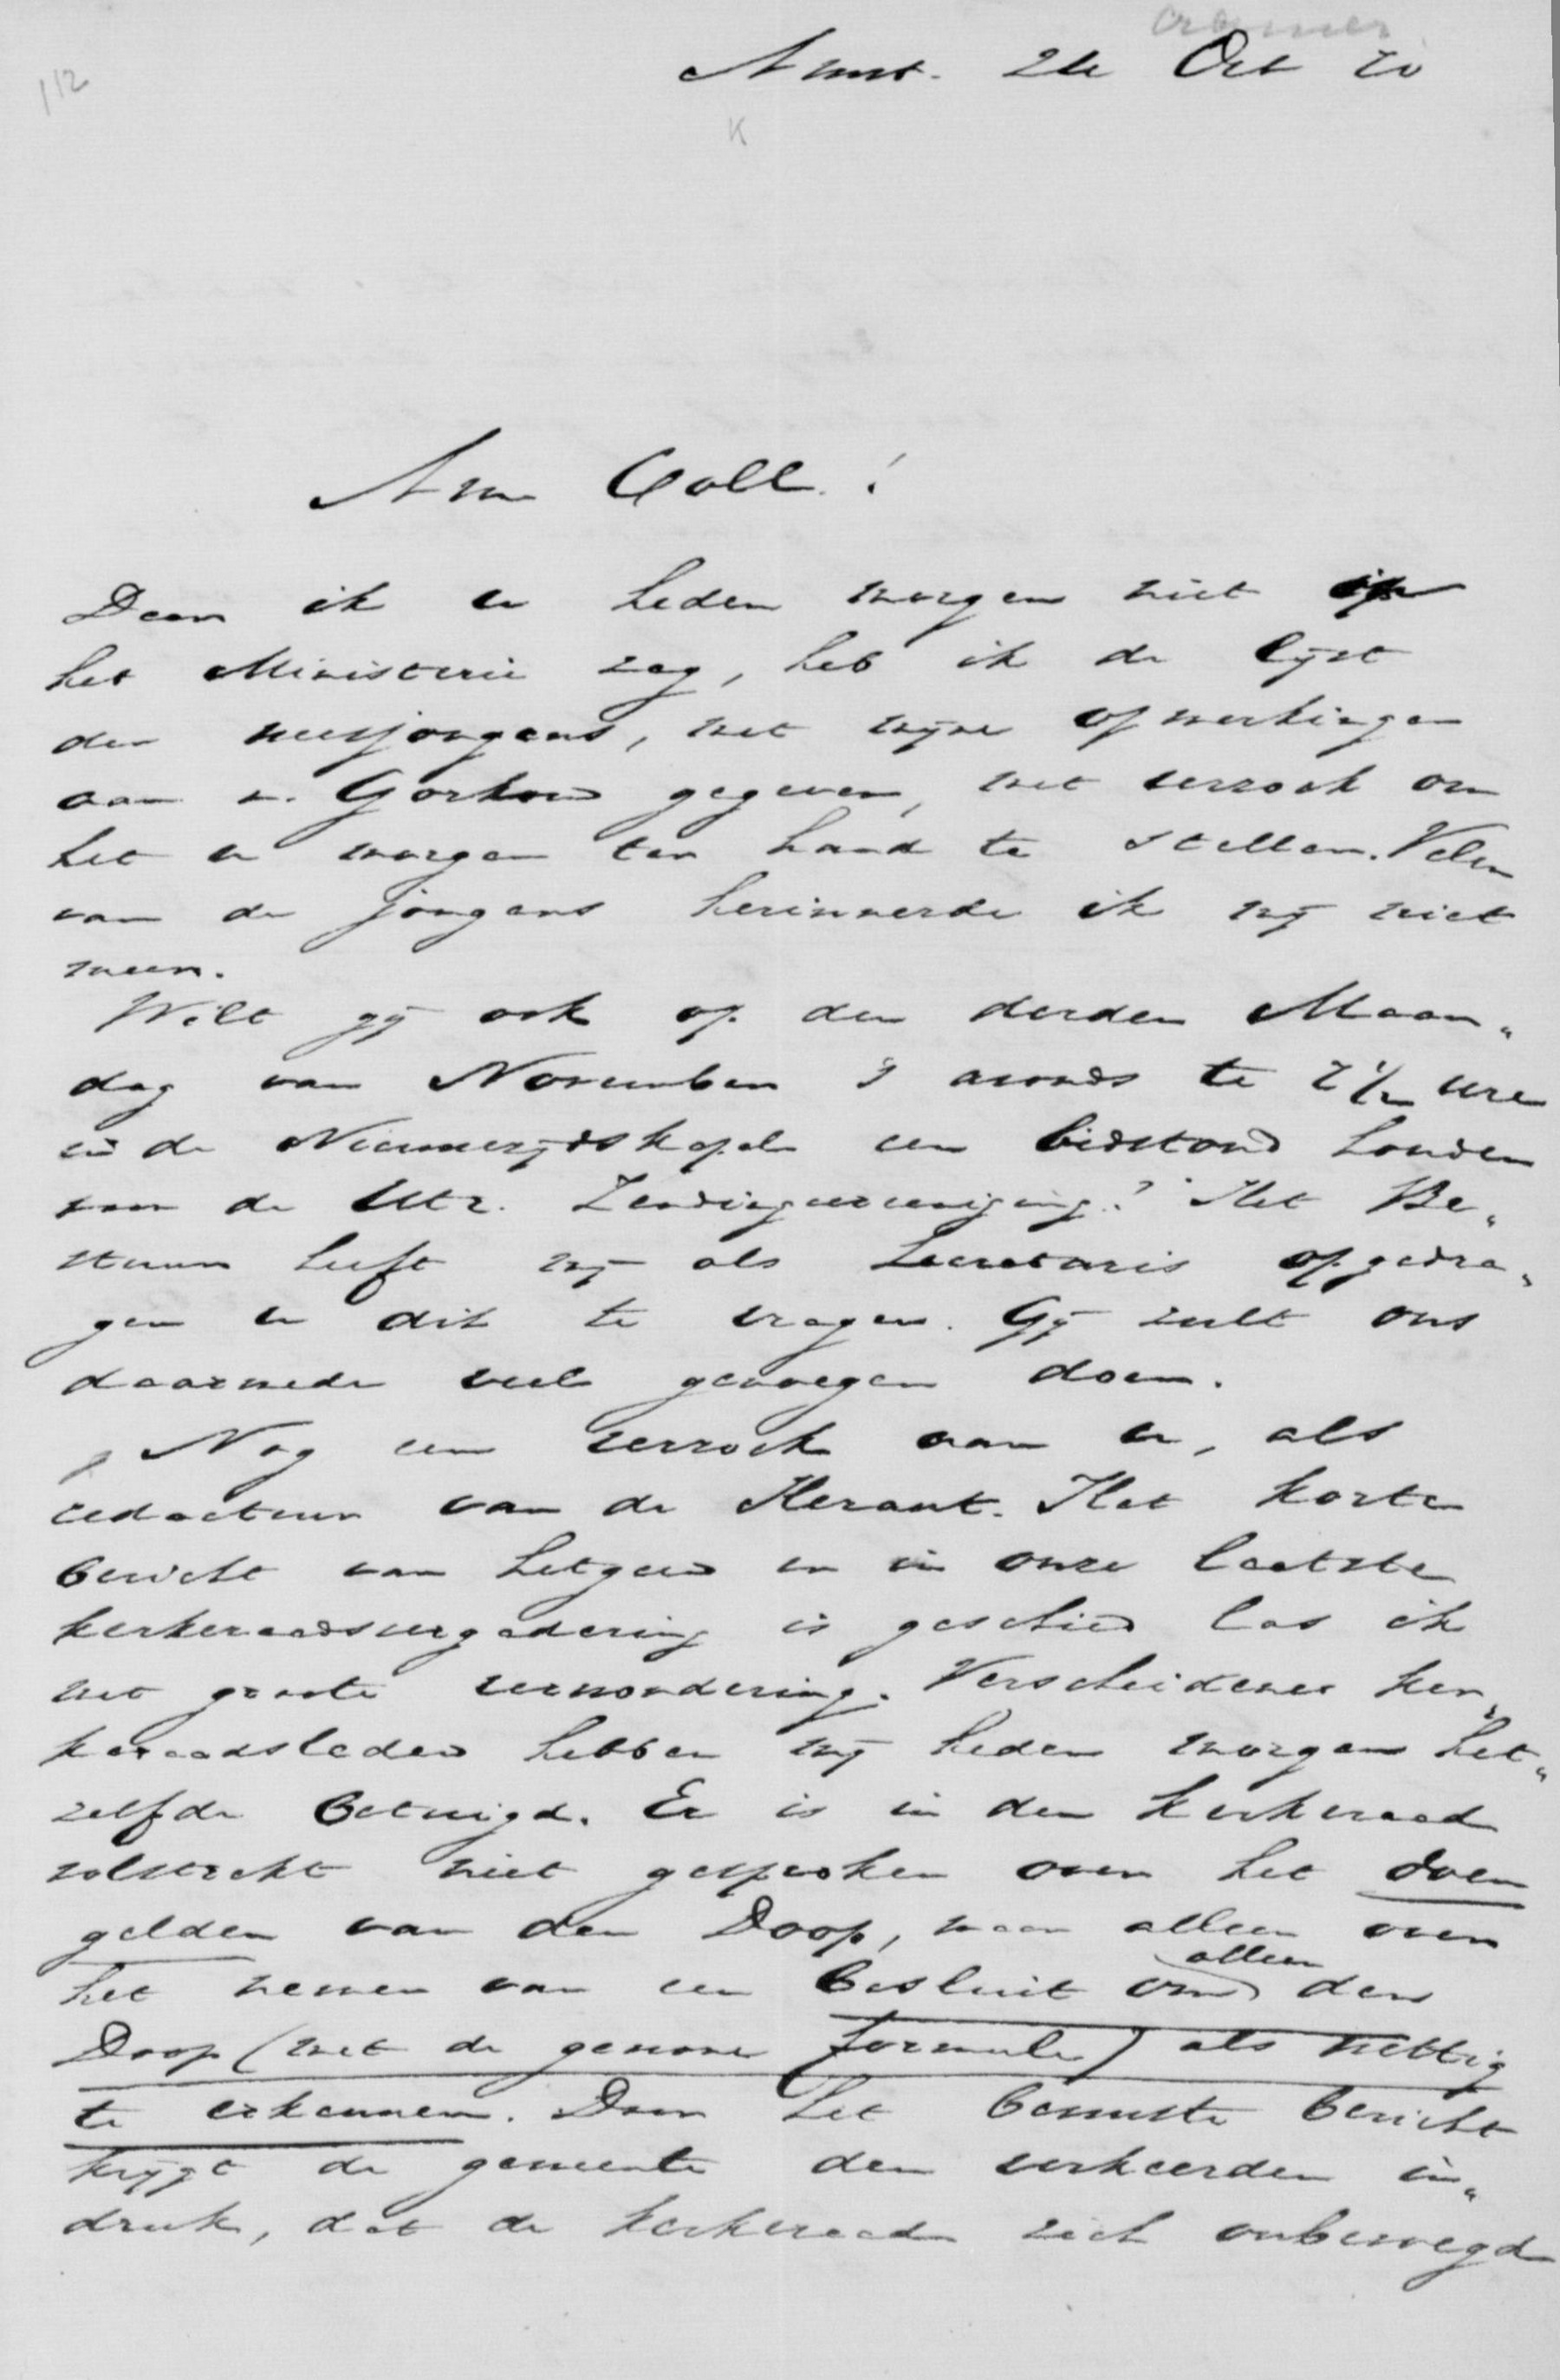 112
Cramer
Amst. 24 Oct 70
K
Am. Coll.!
Daar ik u heden morgen niet op
het Ministerie zag, heb ik de lijst
der weesjongens, met mijne opmerkingen
aan v. Gorkom gegeven, met verzoek om
het u morgen ter hand te stellen. Velen
van de jongens herinnerde ik mij niet
meer.
Wilt gij ook op den derden Maan„
dag van November 's avonds te 7 1/2 ure
in de Nieuwezijdskapel een bidstond houden
voor de Utr. Zendingvereeniging? Het Be„
stuur heeft mij als Secretaris opgedra„
gen u dit te vragen. Gij zult ons
daarmede veel genoegen doen.
Nog een verzoek aan u, als
redacteur van de Heraut. Het korte
bericht van hetgeen er in onze laatste
kerkeraadsvergadering is geschied las ik
met groote verwondering. Verscheidene ker„
keraadsleden hebben mij heden morgen het„
zelfde betuigd. Er is in den kerkeraad
volstrekt niet gesproken over het doen
gelden van den Doop, maar alleen over
het nemen van een besluit om alleen den
Doop (met de gewone formule) als wettig
te erkennen. Door het bewuste bericht
krijgt de gemeente den verkeerden in„
druk, dat de kerkeraad zich onbevoegd